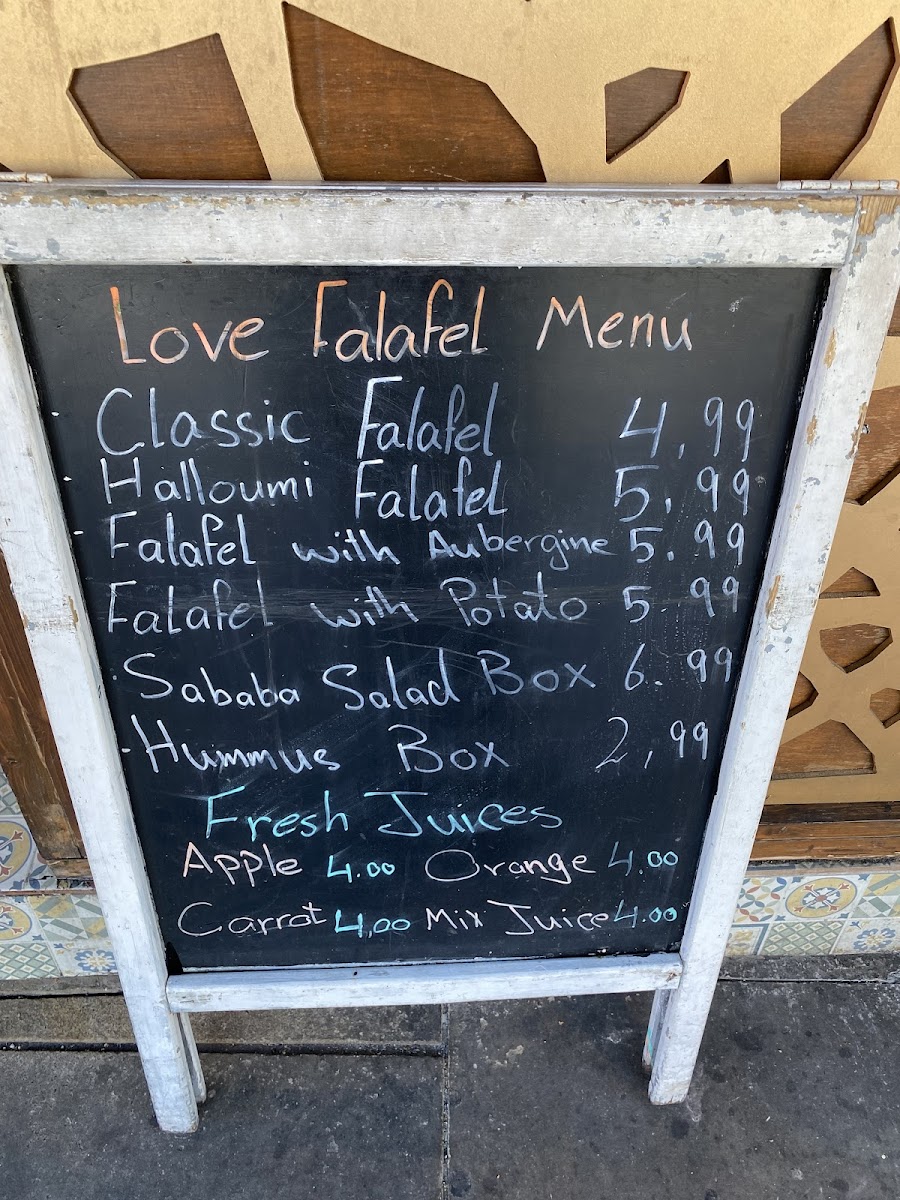 Love Falafel Menu
Classic Falafel 4,99
Halloumi Falafel 5,99
Falafel with Aubergine 5.99
Falafel with Potato 5.99
Sababa Salad Box 6.99
Hummus Box 2,99
Fresh Juices
Apple 4.00 Orange 4.00
Carrot 4,00 Mix Juice 4.00